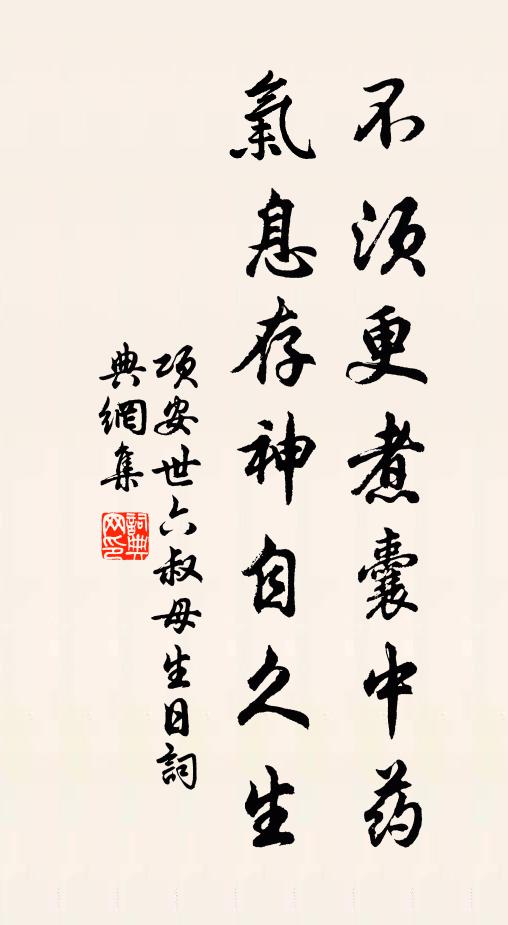 不须更煮囊中药
氣息存神自久生
项安世六叔母生日詞
典網集
詞典
网印